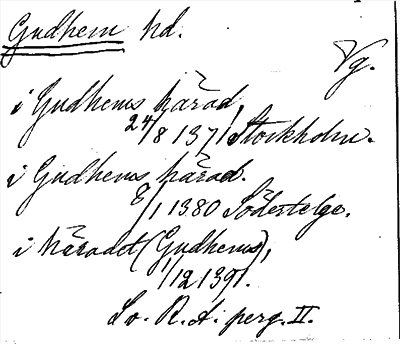 Gudhem hd.
Vg.
i Gudhems härad,
24/8 1371 Stockholm.
i Gudhems härad.
8/1 1380 Södertelge.
i häradet (Gudhems),
1/12 1391.
Sv. R. A. perg. II.